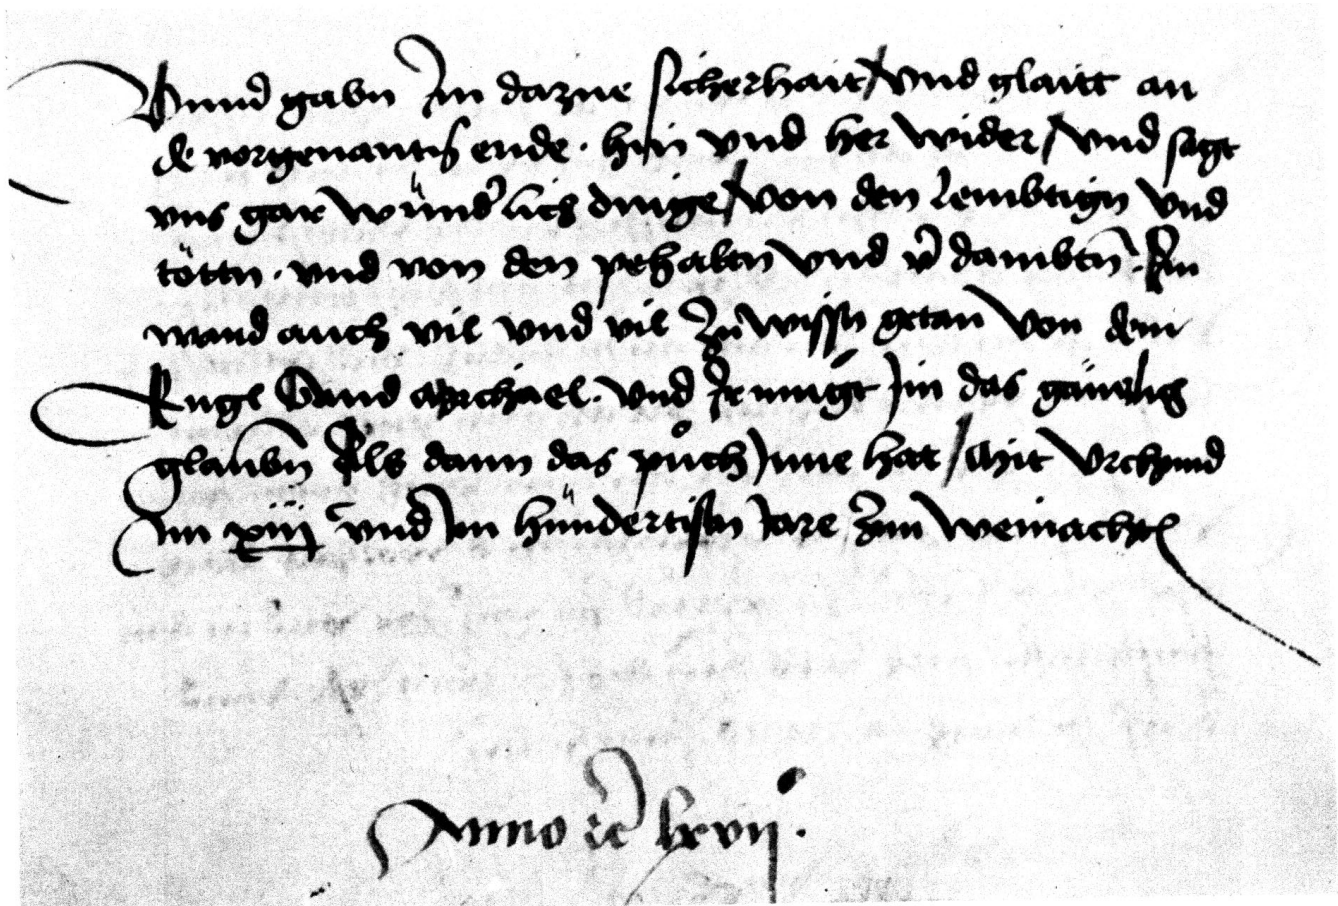 Vnnd gabn Im darzue sicherhait / vnd glaitt an
de vorgenantn ende · hin vnd her wider / vnd sagt
vns gar wünderlich dinge / von den lembtign vnd
töttn · vnd von den pehaltn vnd v̄dambtn̄ · Im
ward auch vil vnd vil zu wissn getan von dem
Engl Sand Mychael · vnd Jr nuigt in das
glaubn̄ Als dann das půch Inne hat / Mit vrchund
Im xiij vnd Im hündertistn Jare Zun Weinachtn
Anno ꝛc̄ lxvij ·